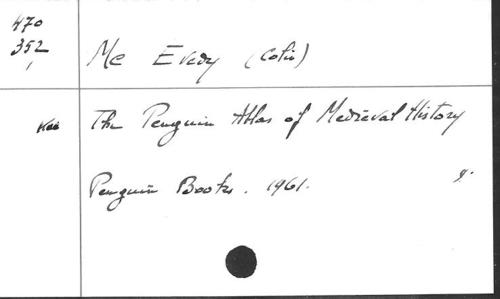 470
352
1
Mc Evedy (Colin)
The Penguin Atlas of Medieval History
Penguin Books. 1961.